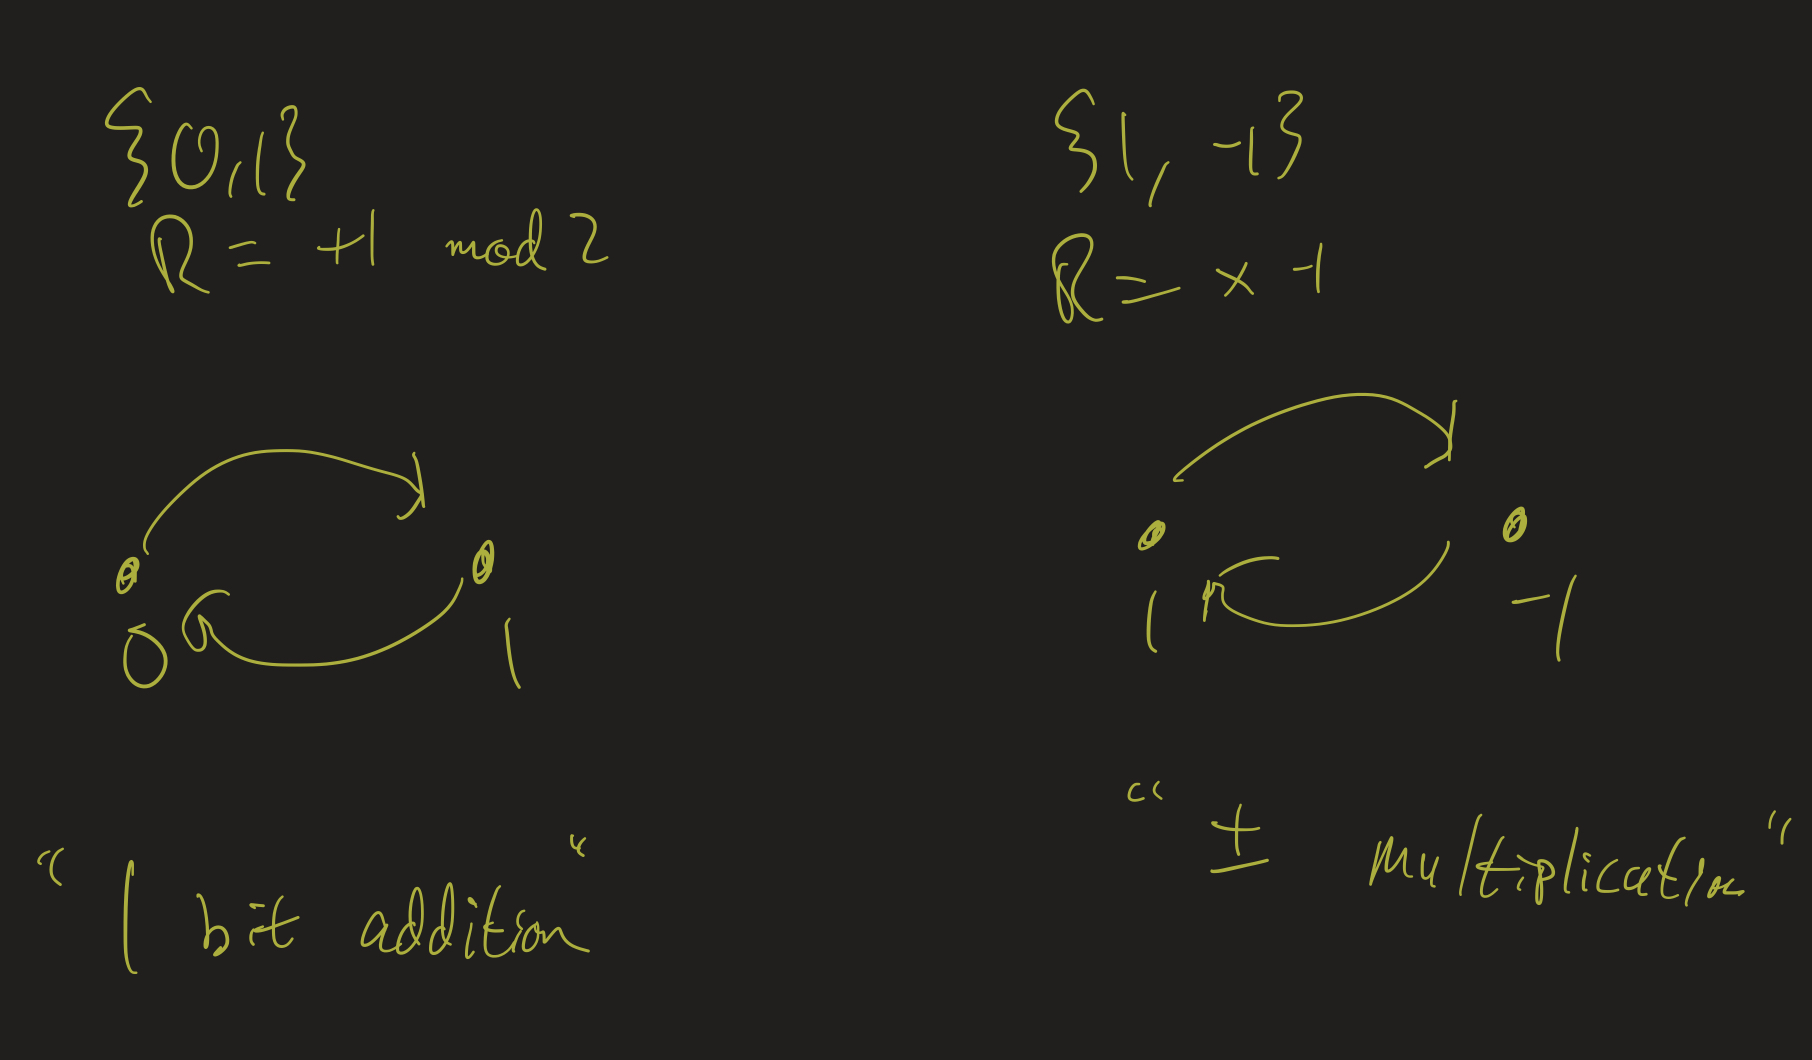 {0,1}
R = +1 mod 2
0 1
"1 bit addition"
{1, -1}
R = × -1
1 -1
"± multiplication"